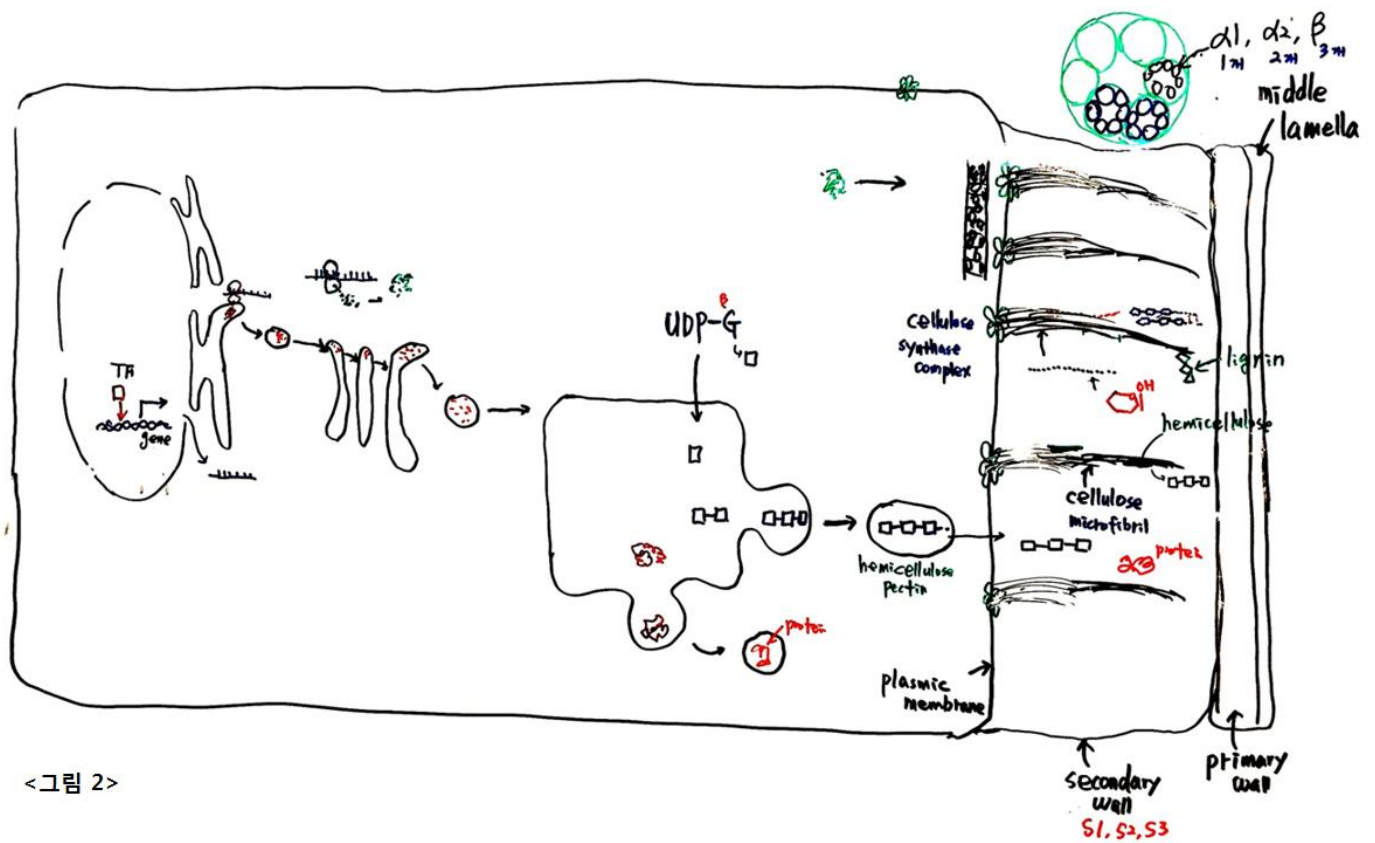 α1, α2, β
1개 2개 3개
middle
lamella
TF
gene
UDP-G
β
cellulose
synthase
complex
lignin
OH
hemicellulose
cellulose
microfibril
protein
hemicellulose
pectin
protein
plasmic
membrane
primary
wall
secondary
wall
S1, S2, S3
<그림 2>